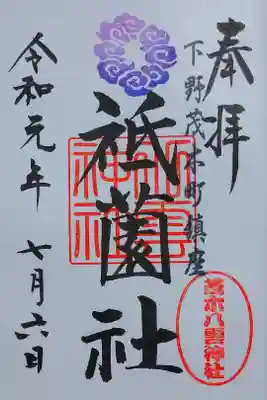 奉拝
下野茂木町鎮座
祗園社
令和元年 七月六日
茂木八雲神社